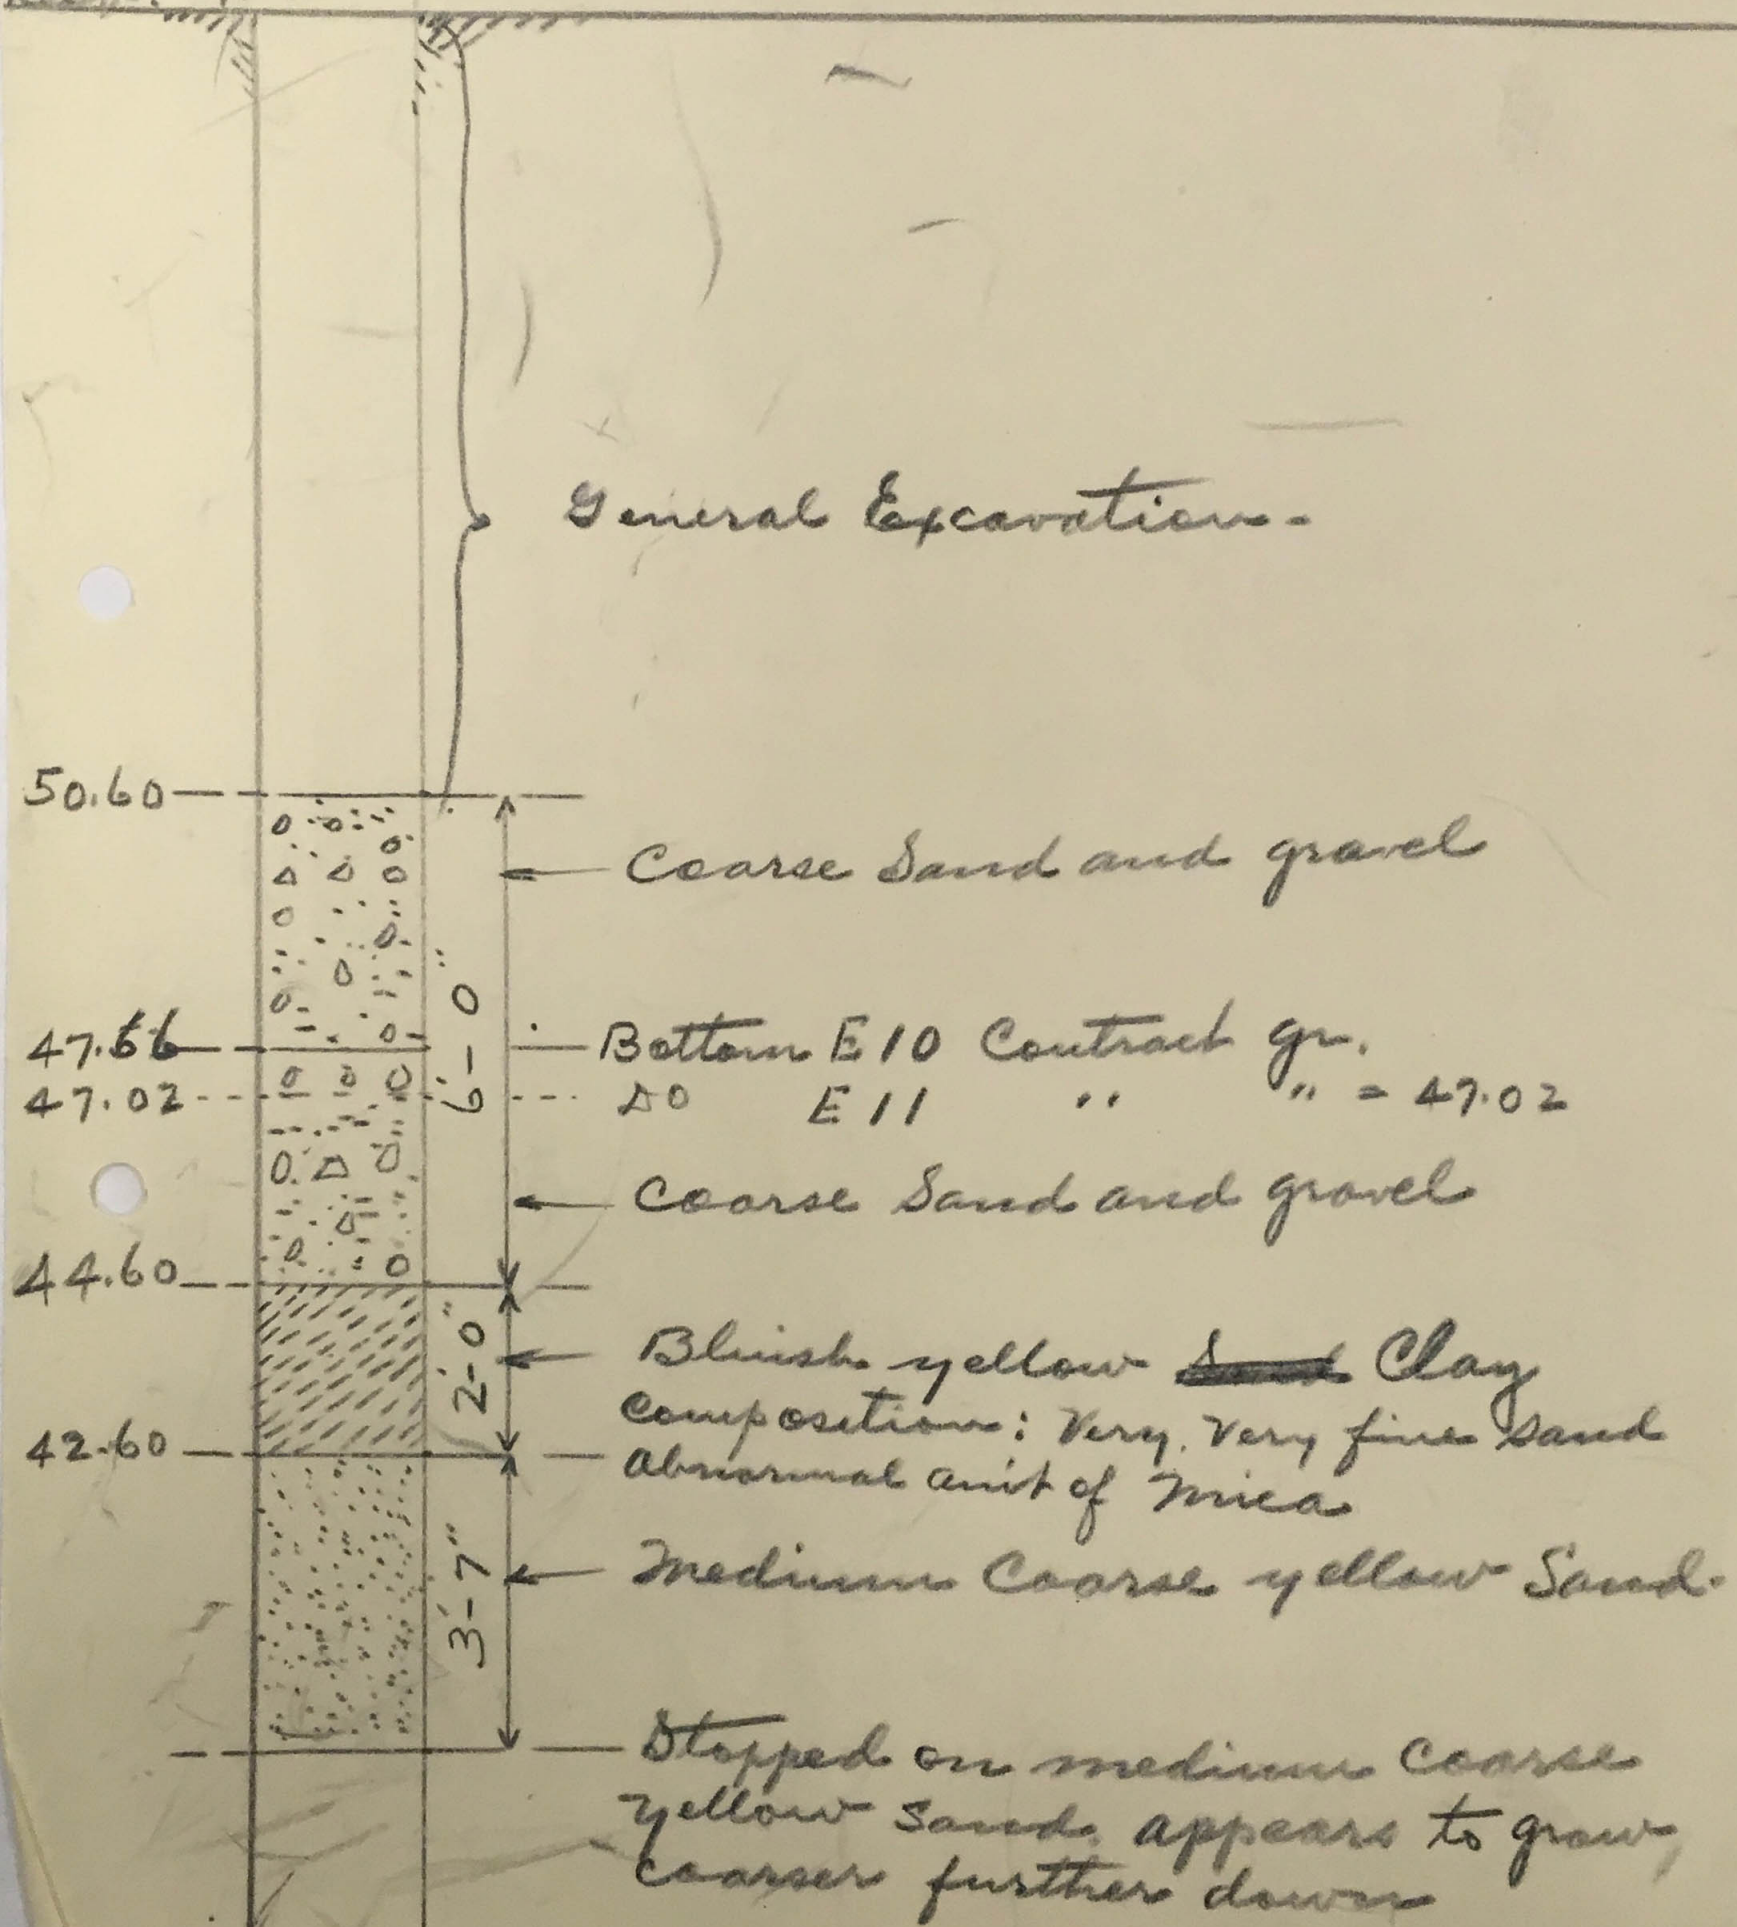 General Excavation -
50.60
Coarse Sand and gravel
6'-0"
47.66
Bottom E10 Contract gr.
47.02
DO E11 " " = 47.02
Coarse Sand and gravel
44.60
2'-0"
Bluish yellow Sand Clay
Composition: Very, Very fine sand
42.60
Abnormal amt of Mica
3'-7"
Medium Coarse yellow Sand.
Stopped on medium coarse
yellow sand, appears to grow,
coarser further down